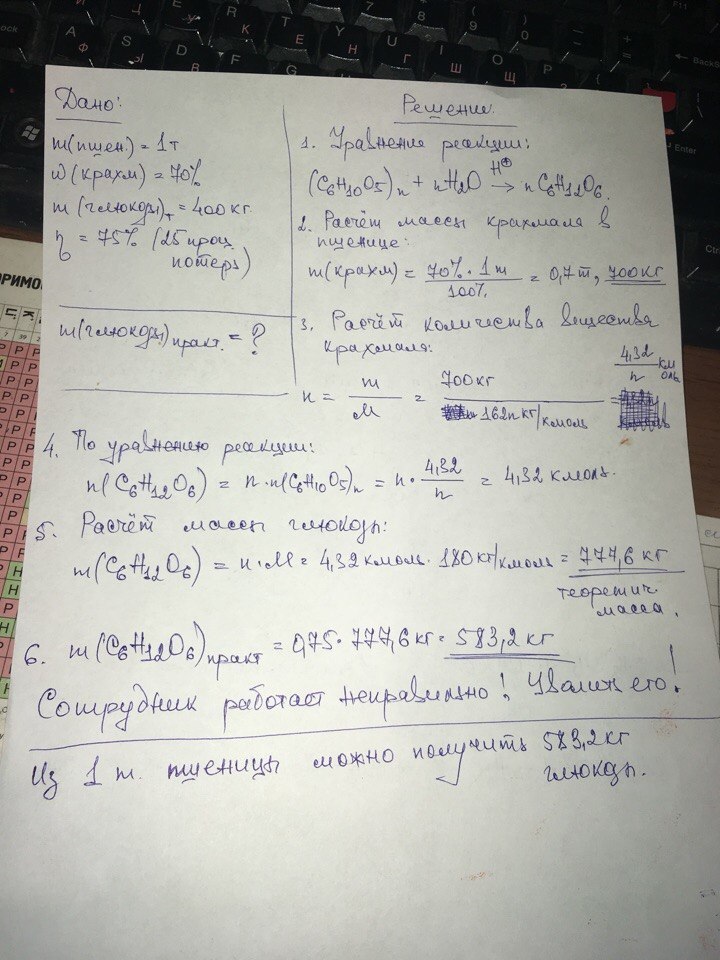 Дано:
m(пшен) = 1т
ω(крахм) = 70%
m(глюкозы)т = 400 кг
η = 75% (25 проц
потерь)
m(глюкозы)практ. = ?
Решение.
1. Уравнение реакции:
(C6H10O5)n + nH2O →H⊕ nC6H12O6.
2. Расчёт массы крахмала в
пшенице:
m(крахм) = 70% · 1т / 100% = 0,7т, 700 кг
3. Расчёт количества вещества
крахмала:
n = m / M = 700 кг / 162n кг/кмоль = 4,32 / n кмоль
4. По уравнению реакции:
n(C6H12O6) = n · n(C6H10O5)n = n · 4,32 / n = 4,32 кмоль.
5. Расчёт массы глюкозы:
m(C6H12O6) = n · M = 4,32 кмоль · 180 кг/кмоль = 777,6 кг
теоретич.
масса.
6. m(C6H12O6)практ = 0,75 · 777,6 кг = 583,2 кг
Сотрудник работает неправильно! Уволить его!
Из 1 т. пшеницы можно получить 583,2 кг
глюкозы.